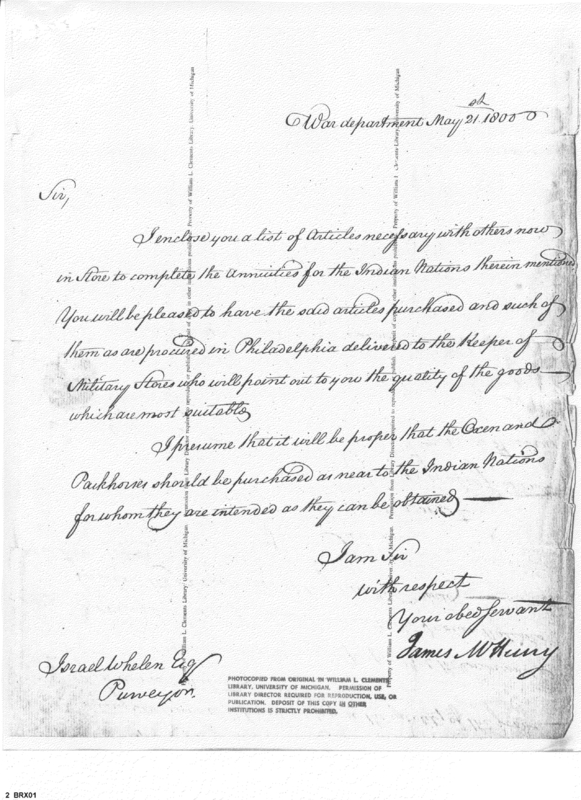 War department May 21st 1800
Sir,
I enclose you a list of Articles necessary with others now
in Store to complete the Annuities for the Indian Nations therein mentioned
You will be pleased to have the said articles purchased and such of
them as are procured in Philadelphia delivered to the Keeper of
Military Stores who will point out to you the quality of the goods
which are most suitable
I presume that it will be proper that the Oxen and
Packhorses should be purchased as near to the Indian Nations
for whom they are intended as they can be obtained
I am Sir
with respect
Your obed Servant
James McHenry
Israel Whelen Esq
Purveyor.
PHOTOCOPIED FROM ORIGINAL IN WILLIAM L. CLEMENTS
LIBRARY, UNIVERSITY OF MICHIGAN. PERMISSION OF
LIBRARY DIRECTOR REQUIRED FOR REPRODUCTION, USE, OR
PUBLICATION. DEPOSIT OF THIS COPY IN OTHER
INSTITUTIONS IS STRICTLY PROHIBITED.
Property of William L. Clements Library, University of Michigan
Property of William L. Clements Library, University of Michigan
2 BRX01